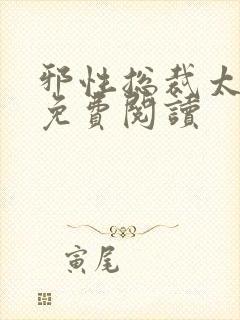 邪性总裁太
免費閱讀
寅尾